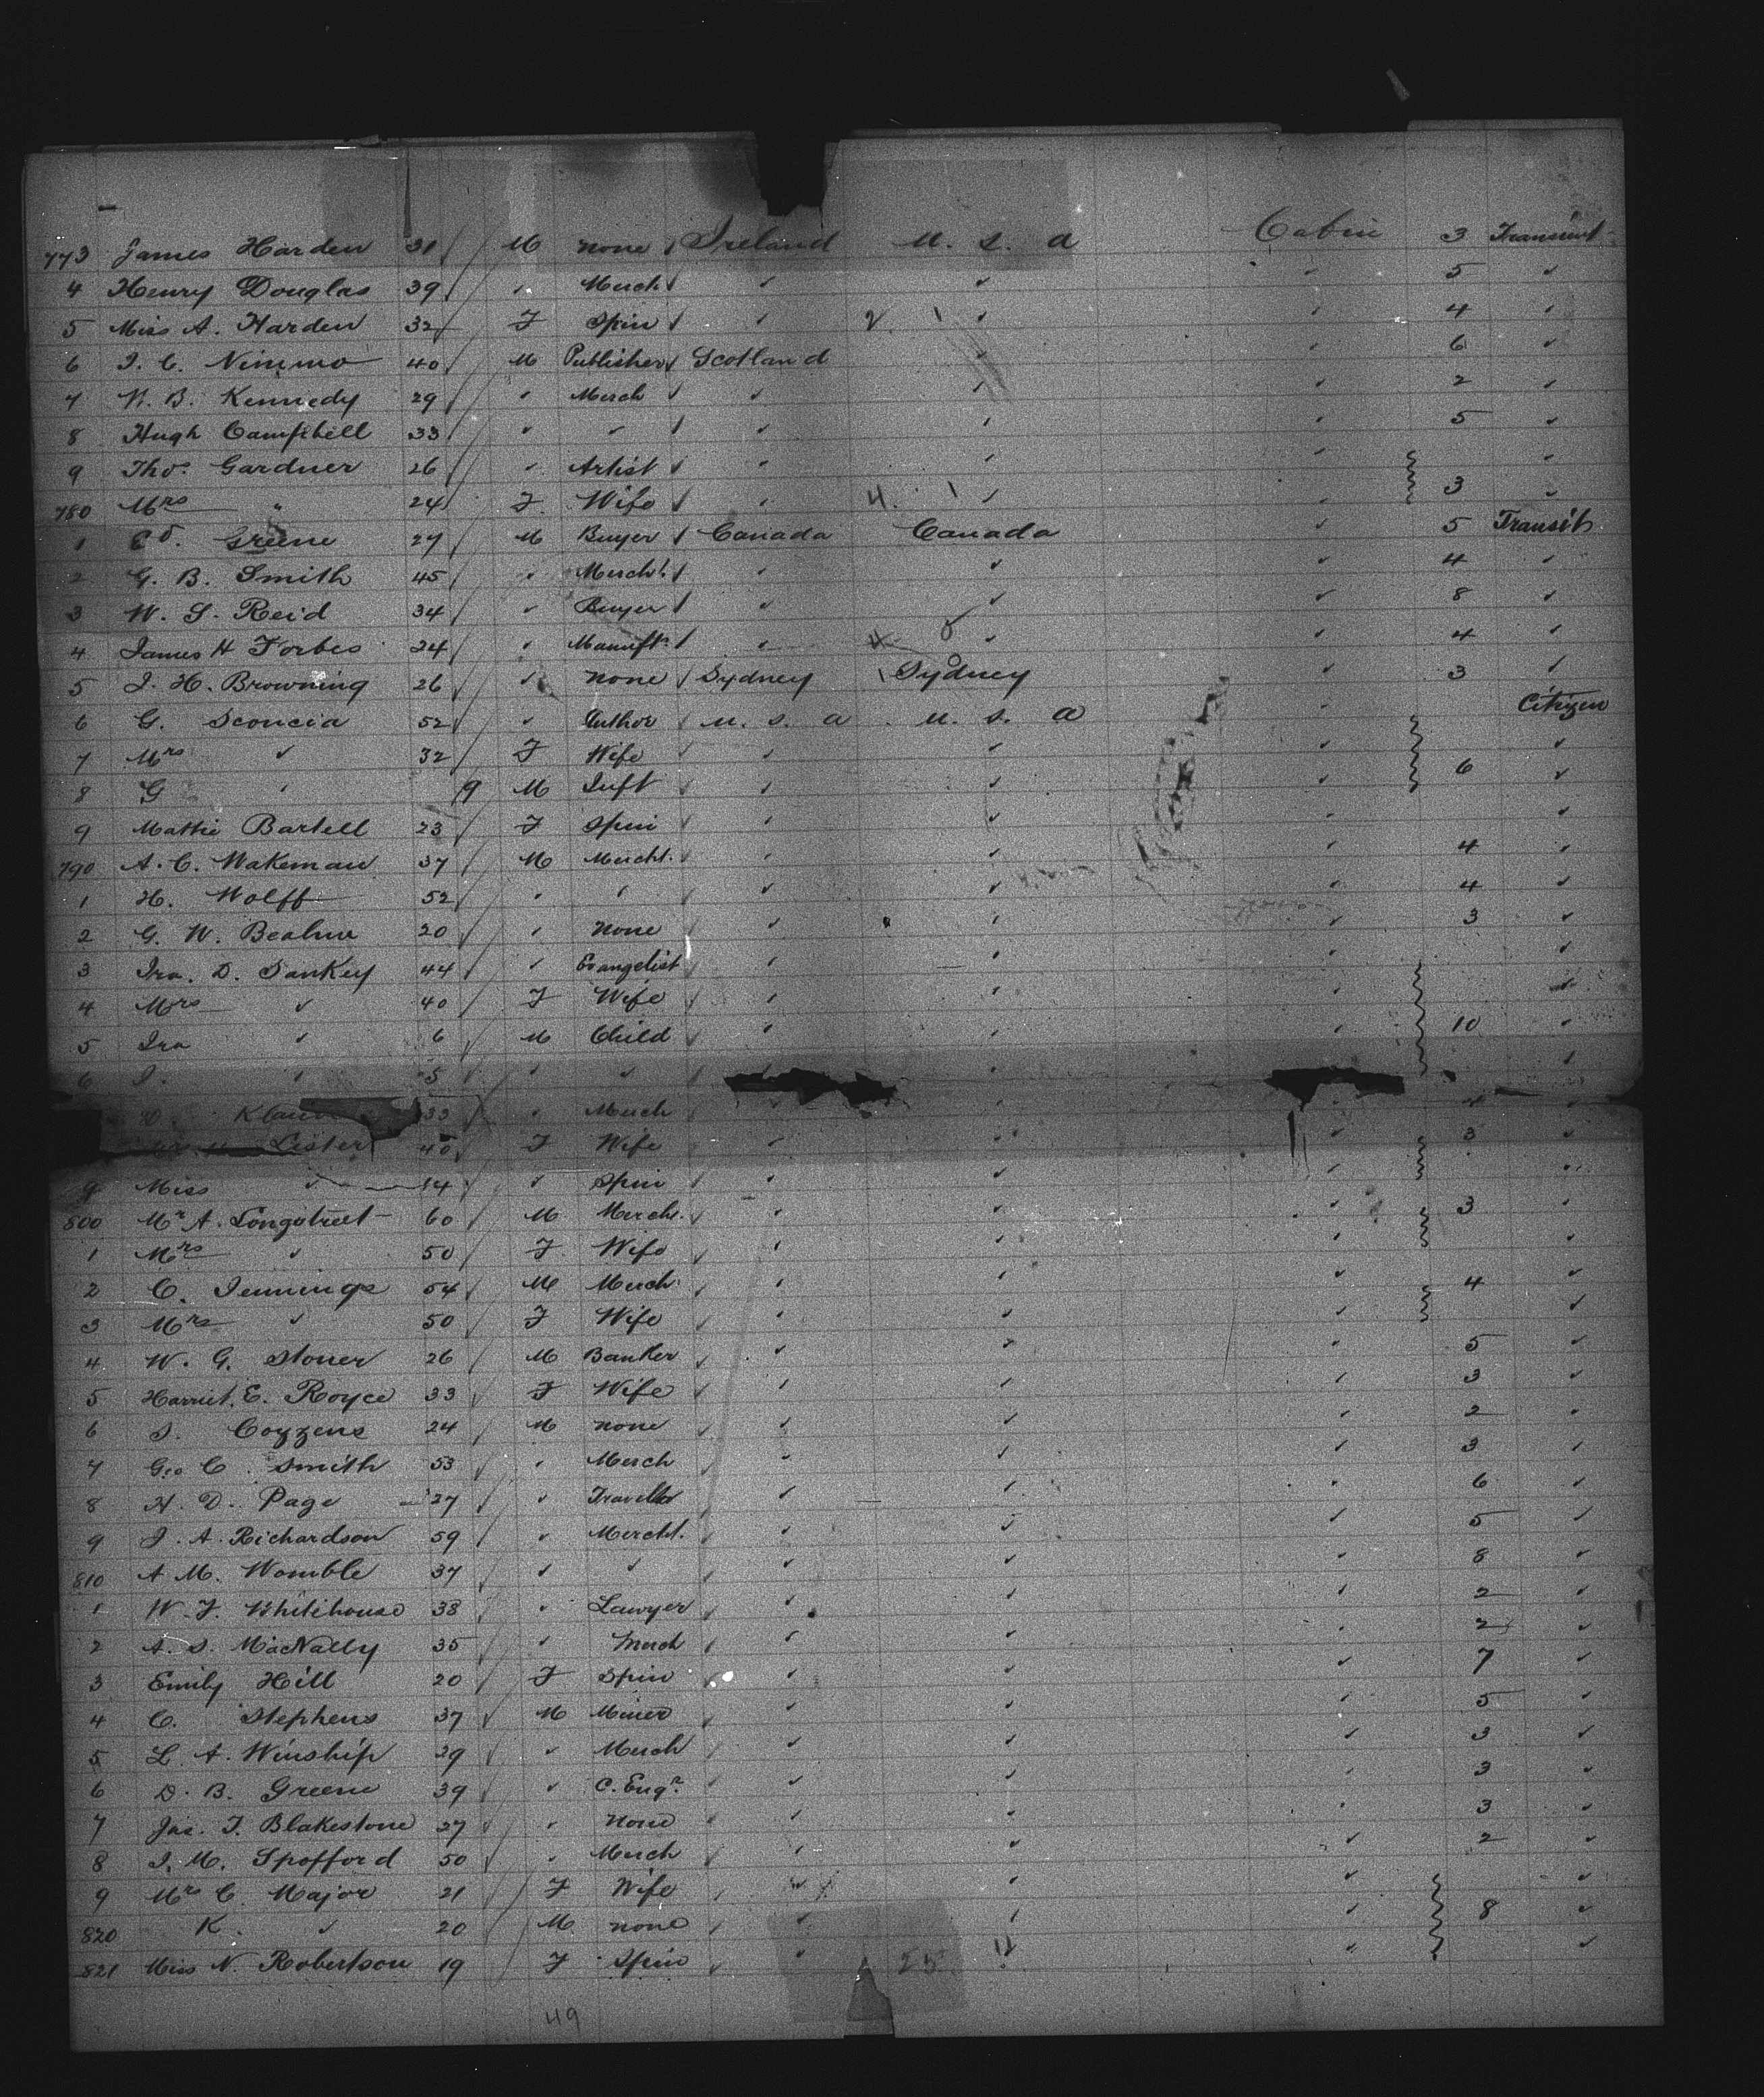 773 James Harden 31 M none Ireland U. S. a Cabin 3 Transient
4 Henry Douglas 39 " Merch " " " 5 "
5 Miss A. Harden 32 F Spin " 2. 1 " " 4 "
6 J. C. Nimmo 40 M Publisher Scotland " " 6 "
7 W. B. Kennedy 29 " Merch " " " 2 "
8 Hugh Campbell 33 " " " " " 5 "
9 Tho⁠s. Gardner 26 " Artist " " " "
780 Mrs " 24 F. Wife " 4. 1 " " 3 "
1 Ed. Greene 27 M Buyer Canada Canada " 5 Transit
2 G. B. Smith 45 " Mercht. " " " 4 "
3 W. S. Reid 34 " Buyer " " " 8 "
4 James H Forbes 24 " Manuftr. " 4 " " 4 "
5 J. H. Browning 26 " none Sydney 1 Sydney " 3 "
6 G. Sconcia 52 " Author U. S. a U. S. a " Citizen
7 Mrs " 32 F Wife " " " "
8 G " 9 M Inft " " " 6 "
9 Mattie Bartell 23 F Spin " " " "
790 A. C. Wakeman 37 M Mercht. " " " 4 "
1 H. Wolff 52 " " " " " 4 "
2 G. W. 20 " none " " " 3 "
3 Ira. D. Sankey 44 " Evangelist " " " "
4 Mrs " 40 F Wife " " " "
5 Ira " 6 M Child " " " 10 "
6 I. " 5 " " " " "
33 " Merch " " " "
Lester 40 F Wife " " " 3 "
9 Miss " 14 " Spin " " " "
800 Mr A. Longstreet 60 M Mercht. " " " 3 "
1 Mrs " 50 F Wife " " " "
2 C. Jennings 54 M Merch. " " " 4 "
3 Mrs " 50 F Wife " " " "
4 W. G. Stoner 26 M Banker " " " 5 "
5 Harriet. E. Royce 33 F Wife " " " 3 "
6 J. Cozzens 24 M none " " " 2 "
7 Geo C. Smith 53 " Merch " " " 3 "
8 H. D. Page 27 " " " " 6 "
9 J. A. Richardson 59 " Mercht. " " " 5 "
810 A M. Womble 37 " " " " " 8 "
1 W. F. Whitehouse 38 " Lawyer " " " 2 "
2 A. S. MacNally 35 " Merch " " " 2 "
3 Emily Hill 20 F Spin " " " 7 "
4 C. Stephens 37 M Miner " " " 5 "
5 L. A. Winship 29 " Merch " " " 3 "
6 D. B. Greene 39 " C. Engr. " " " 3 "
7 Jas. T. Blakestone 27 " none " " " 3 "
8 J. M. Spofford 50 " Merch " " " 2 "
9 Mrs C. Major 21 F Wife " " " "
820 K. " 20 M none " " " 8 "
821 Miss N. Robertson 19 F Spin " 25 11 " "
49